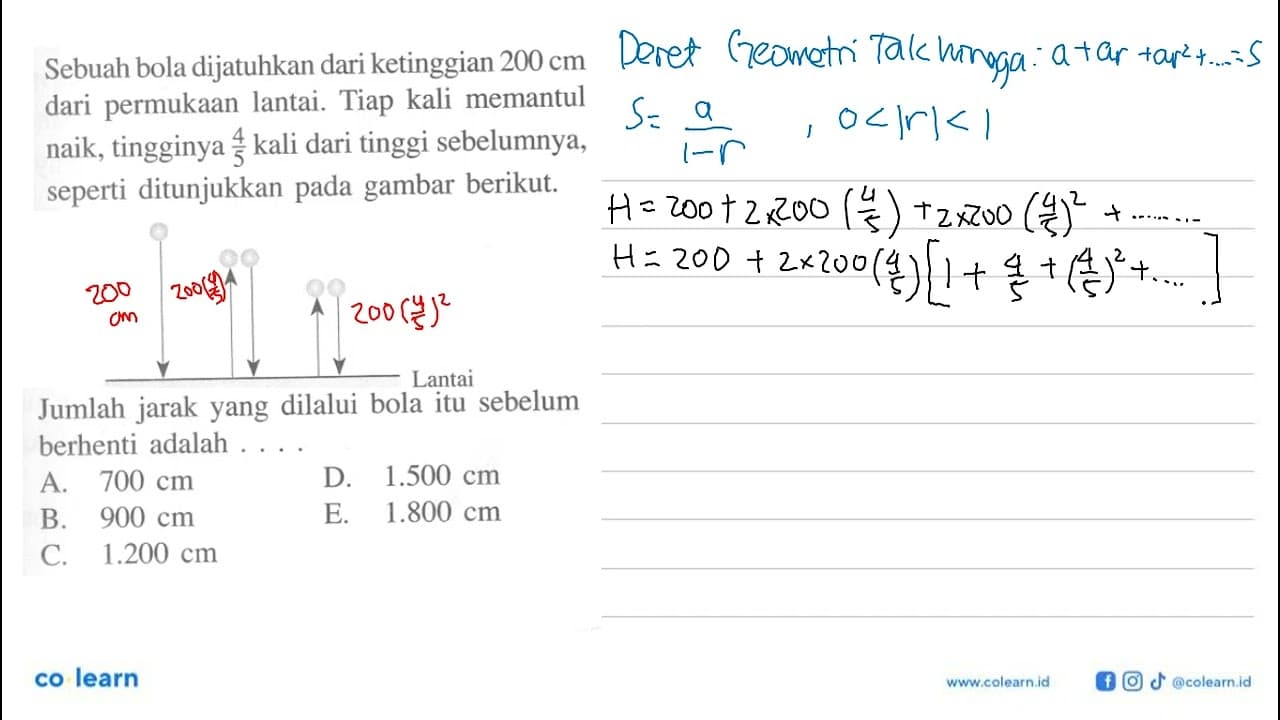 Sebuah bola dijatuhkan dari ketinggian 200 cm
dari permukaan lantai. Tiap kali memantul
naik, tingginya 4/5 kali dari tinggi sebelumnya,
seperti ditunjukkan pada gambar berikut.
200 cm
200(4/5)
200(4/5)²
Lantai
Jumlah jarak yang dilalui bola itu sebelum
berhenti adalah . . . .
A. 700 cm
B. 900 cm
C. 1.200 cm
D. 1.500 cm
E. 1.800 cm
Deret Geometri Tak hingga: a+ar+ar²+....=S
S= a/(1-r) , 0<|r|<1
H = 200 + 2x200 (4/5) + 2x200 (4/5)² + .........
H = 200 + 2×200 (4/5) [1 + 4/5 + (4/5)² + .... ]
co learn
www.colearn.id
@colearn.id